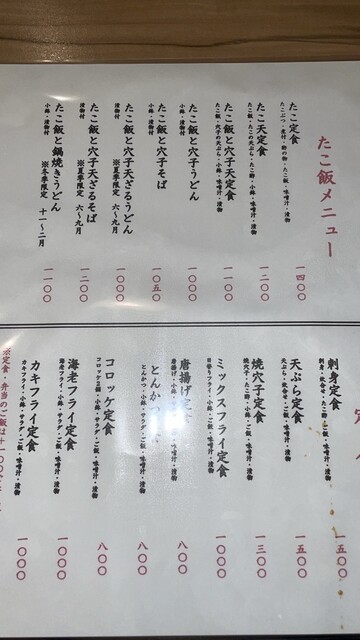 たこ飯メニュー
たこ定食
たこぶつ・煮付・酢の物・たこ飯・味噌汁・漬物
一四〇〇
たこ天定食
たこ飯・たこの天ぷら・たこ酢・小鉢・味噌汁・漬物
一二〇〇
たこ飯と穴子天定食
たこ飯・穴子の天ぷら・小鉢・味噌汁・漬物
一一〇〇
たこ飯と穴子うどん
小鉢・漬物付
一〇〇〇
たこ飯と穴子そば
小鉢・漬物付
一〇五〇
たこ飯と穴子天ざるうどん
漬物付
※夏季限定 六〜九月
一〇〇〇
たこ飯と穴子天ざるそば
漬物付
※夏季限定 六〜九月
一二〇〇
たこ飯と鍋焼きうどん
小鉢・漬物付
※冬季限定 十一〜二月
一一〇〇
定
刺身定食
刺身・炊合せ・ご飯・味噌汁・漬物
一五〇〇
天ぷら定食
天ぷら・炊合せ・ご飯・味噌汁・漬物
一五〇〇
焼穴子定食
焼穴子・小鉢・ご飯・味噌汁・漬物
一三〇〇
ミックスフライ定食
日替りフライ・小鉢・ご飯・味噌汁・漬物
一〇〇〇
唐揚げ定
唐揚げ・小鉢・ご飯・味噌汁・漬物
八〇〇
とんかつ
とんかつ・小鉢・サラダ・ご飯・味噌汁・漬物
八〇〇
コロッケ定食
コロッケ2個・小鉢・サラダ・ご飯・味噌汁・漬物
八〇〇
海老フライ定食
海老フライ・小鉢・サラダ・ご飯・味噌汁・漬物
一〇〇〇
カキフライ定食
カキフライ・小鉢・サラダ・ご飯・味噌汁・漬物
一〇〇〇
※定食・弁当のご飯は十一〇〇